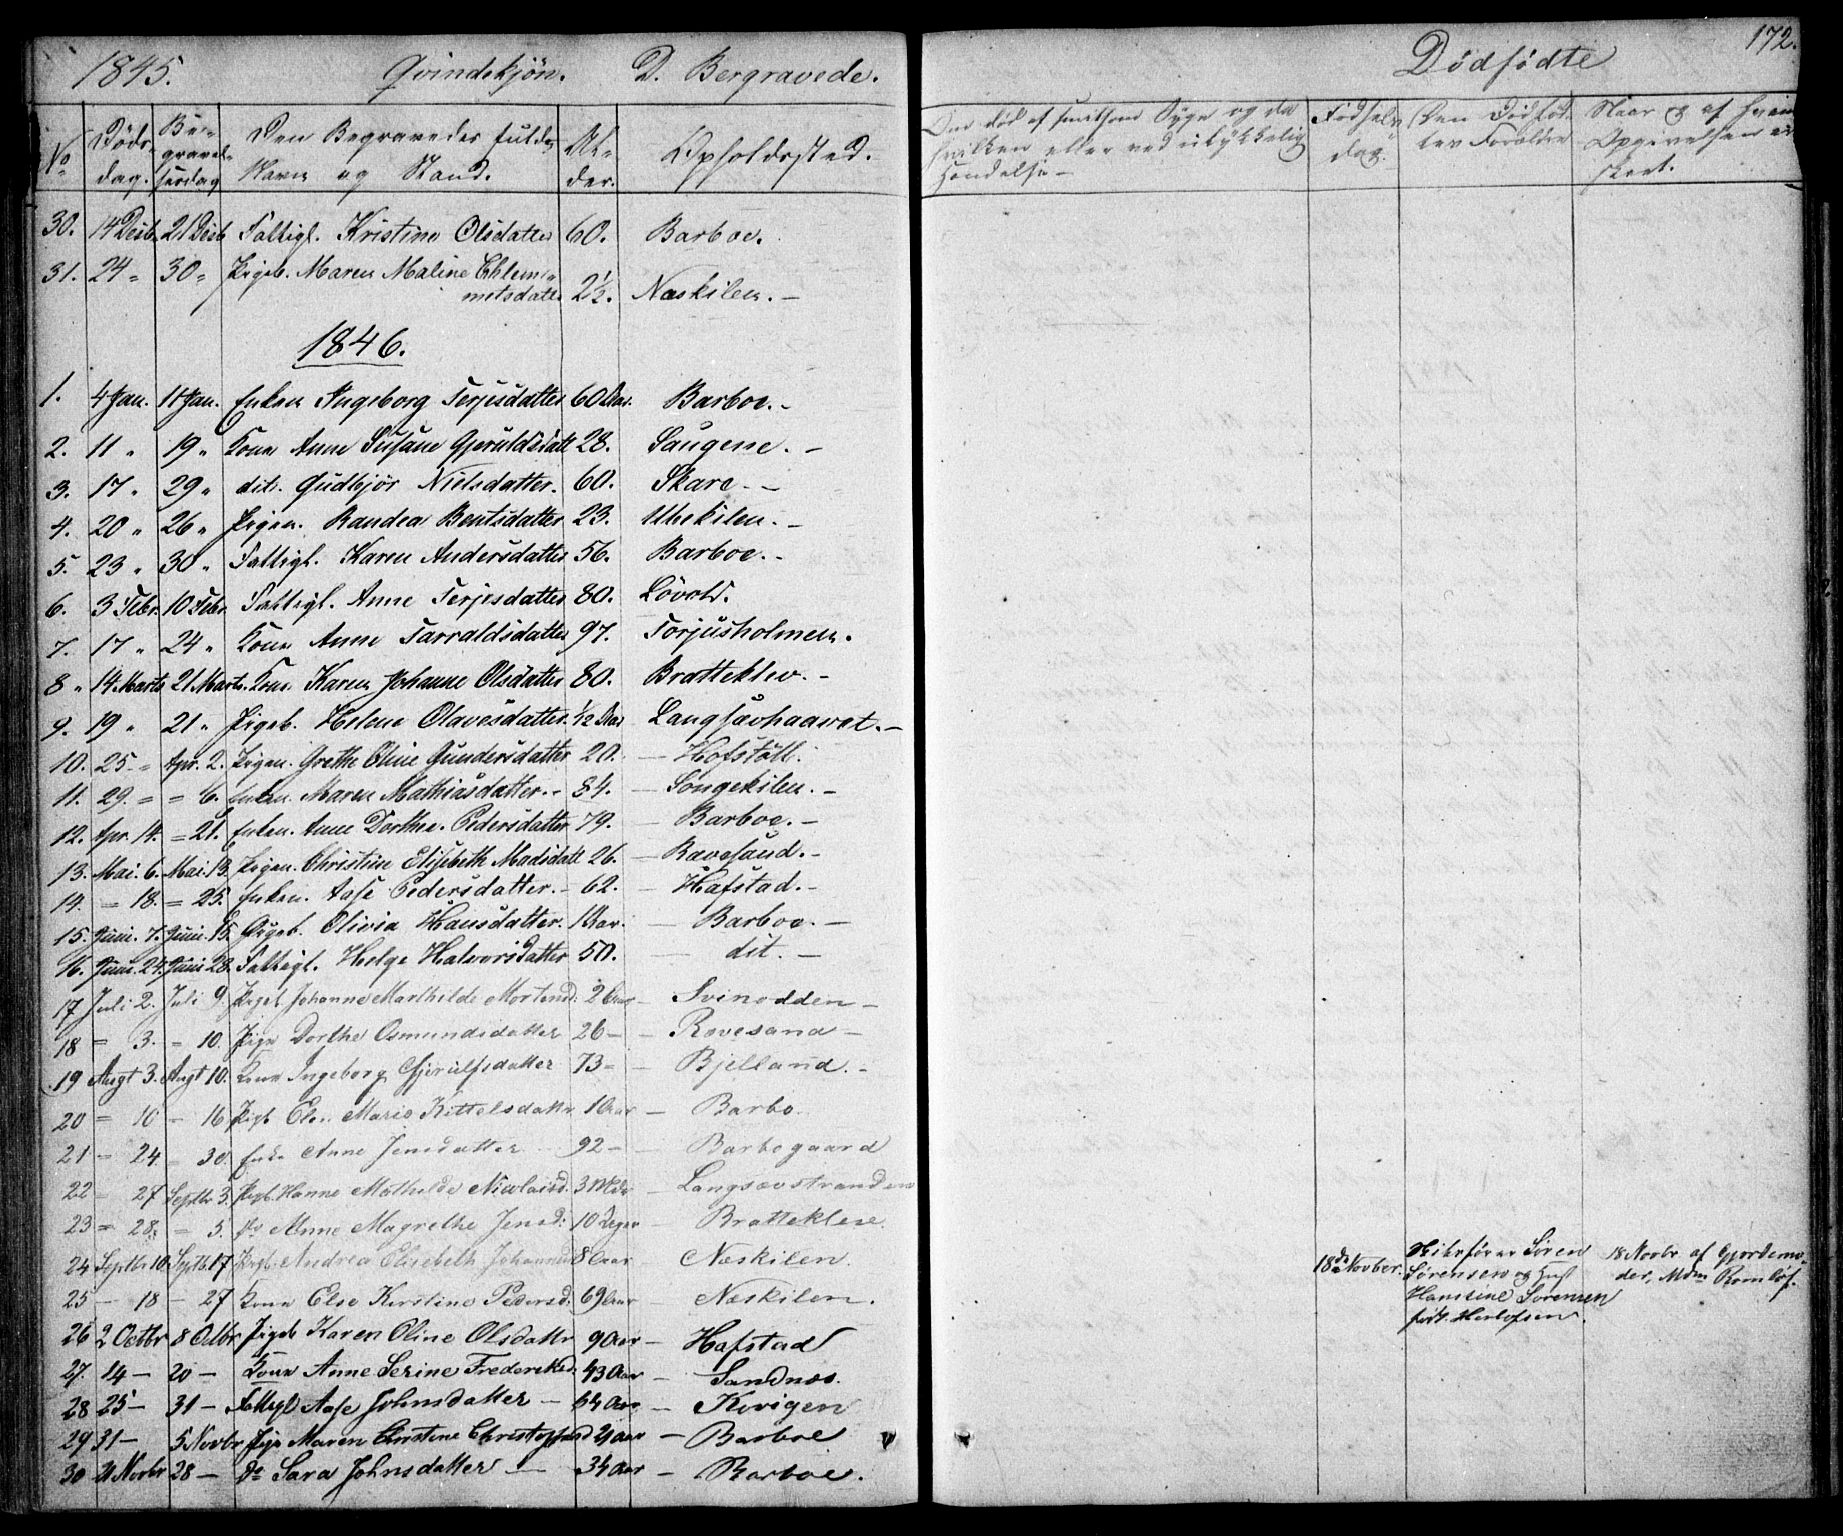 1845. Qvindekjön. D. Bergravede.
No Døds dag. Be= gravel= sesdag Den Begravedes fulde Navn og Stand. Al= der. Opholdssted.
30. 14 Desb. 21 Desb Fattigl. Kristine Olsdatter 60. Barboe.
31. 24 " 30 " Pigeb. Maren Maline Chlem=
metsdatter 2½. Næskilen. –
1846.
1. 4 Jan. 11 Jan. Enken Ingeborg Terjesdatter 60 Aar. Barboe. –
2. 11 " 19 " Kone Anne Susane Gjeruldsdatt 28. Saugene. –
3. 17 " 29 " dit. Gudbjør Nielsdatter. 60. Skare. –
4. 20 " 26 " Pigen. Randea Bentsdatter 23. Ubekilen. –
5. 23 " 30 " Fattigl. Karen Andersdatter 56. Barboe. –
6. 3 Febr. 10 Febr. Fattigl. Anne Terjesdatter 80. Løvold.
7. 17 " 24 " Kone Anne Tarraldsdatter 97. Torjusholmen.
8 " 14 Marts 21 Marts. Kone. Karen Johanne Olsdatter 80. Bratteklev. –
9. 19 " 21 " Pigeb. Helene Olavesdatter. 1/12 Aar Langsævhaaret. –
10. 25 – " Apr. 2. Pigen. Grethe Oline Gundersdatter 20. – Hofstøll.
11. 29. = = 6. Enken. Maren Mathiasdatter. – 84. – Songekilen. –
12. Apr. 14. = 21. Enken. Anne Dorthee. Pedersdatter 79. – Barboe. –
13. Mai. 6. Mai. 13. Pigen. Christine Elisebeth Madsdatt 26. – Ravesand. –
14. = 18. = 25. Enken. Aase Pedersdatter. – 62. – Hafstad. –
15. Juni. 7. Juni. 15. Pigeb. Olivia Hansdatter. 1 Aar. – Barboe. –
16. Juni. 24. Juni 28. Fattigl. Helge Halvorsdatter 50. – dit. –
17 Juli 2. Juli 9. Pigeb Johanne Marthilde Mortensd: 2 Aar – Svinodden –
18 = 3. = 10. Pige Dorthe Osmundsdatter 26 – – Revesand –
19 Augt 3. Augt 10. Kone Ingeborg Gjerulfsdatter 73 – – Bjelland. –
20 = 10 – 16 Pigb Else Marie Kittelsdattr 1 Aar – Barbo.
21 – 24 – 30. Enke Anne Jensdatter 92 – Barbogaard
22 – 27 Septbr 3. Pigb. Hanne Mathilde Nicolaisd. 3 Mdr – Langsævstranden
23 = 28. = 5. Do Anne Magrethe Jensd: 10 Dage – Bratteklev.
24 Septbr 10 Septb. 17 Pigb Andrea Elisebeth Johannesd 8 Aar Næskilen.
25 – 18 – 27 Kone Else Kirstine Pedersd: 69 Aar – Næskilen.
26 2 Octbr 8 Octbr Pigeb Karen Oline Olsdattr 9 Aar – Hafstad
27. 14 – 20 – Kone Anne Serine Frederiksd. 43 Aar – Sandnæs.
28 25 – 31 – Fattigl Aase Johnsdatter – 64 Aar – Kivigen
29 31 – 5 Novbr Pige Maren Christine Christophersd Aar – Barboe
30 21 Novbr 28 – Do Sara Johnsdatter – 34 Aar – Barboe.
Dødfødte
172.
Om død af smitsom Syge og da
hvilken eller ved ulykkelig
Hændelse –
Fødsels
dag.
Den Dødfød=
tes Forældre
Naar & af hvem
Opgivelsen er
skeet.
18de Novber. Hikrfører Søren
Sørensen og Hust
Hansine Sørensen
født Herlofsen.
18 Novbr af Gjordemo=
der, Mdm Romløf.